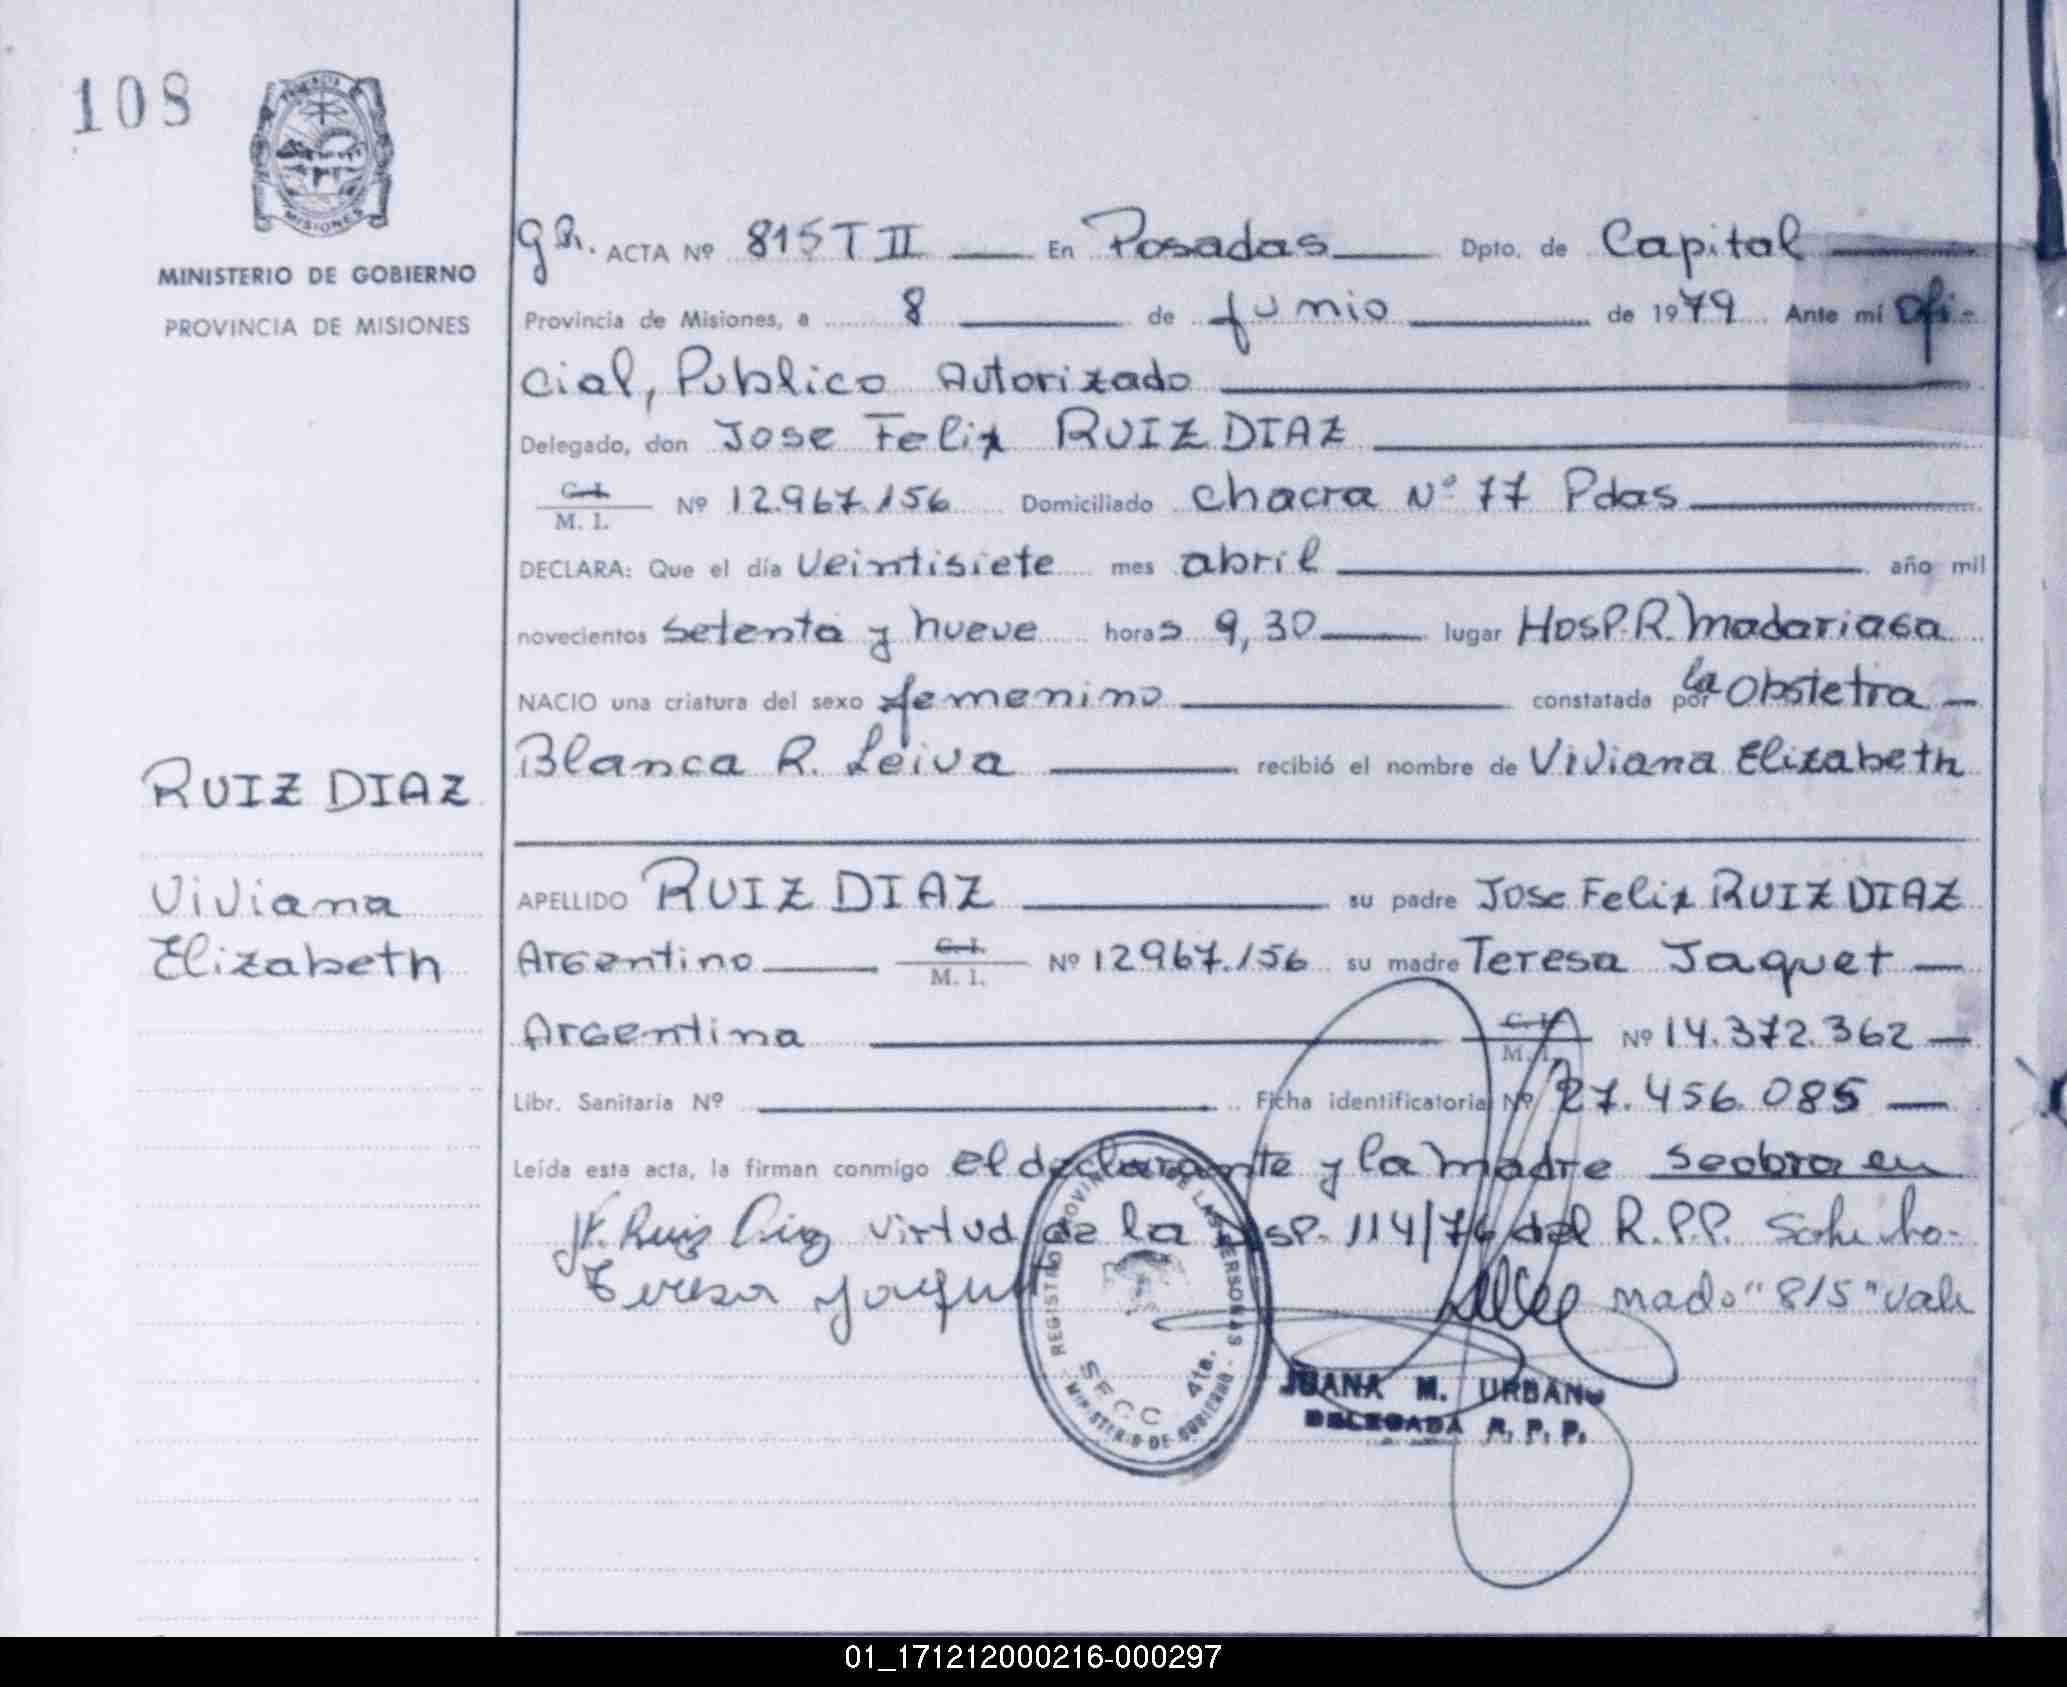 108
MISIONES
MINISTERIO DE GOBIERNO
PROVINCIA DE MISIONES
ACTA Nº 815 T II En Posadas Dpto. de Capital
Provincia de Misiones, a 8 de junio de 1979 Ante mí Ofi-
cial, Publico Autorizado
Delegado, don Jose Felix RUIZ DIAZ
C. I.
M. I. Nº 12.967.156 Domiciliado Chacra Nº 77 Pdas
DECLARA: Que el día Veintisiete mes abril año mil
novecientos setenta y nueve horas 9,30 lugar HosP. R. Madariaga
NACIO una criatura del sexo femenino constatada por la Obstetra
Blanca R. Leiva recibió el nombre de Viviana Elizabeth
RUIZ DIAZ
Viviana
Elizabeth
APELLIDO RUIZ DIAZ su padre Jose Felix RUIZ DIAZ
Argentino C. I. M. I. Nº 12967.156 su madre Teresa Jaquet
Argentina C. I. M. I. Nº 14.372.362
Libr. Sanitaria Nº Ficha identificatoria Nº 27.456.085
Leída esta acta, la firman conmigo el declarante y la madre se obra en
Ruiz Diaz virtud de la Dsp. 114/76 del R.P.P.
Teresa Jaquet mado "815" vale
REGISTRO PROVINCIAL DE LAS PERSONAS
SECC 4ta.
MINISTERIO DE GOBIERNO
JUANA M. URBANO
DELEGADA R. P. P.
01_171212000216-000297